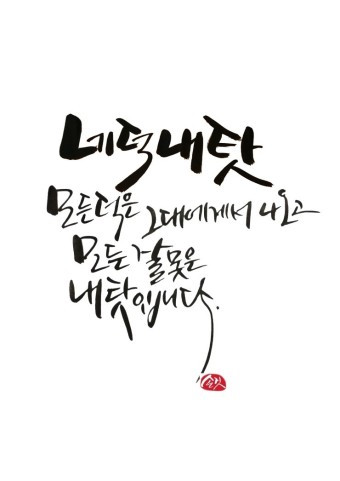 네덕내탓
모든덕은 그대에게서 나오고
모든 잘못은
내탓입니다.